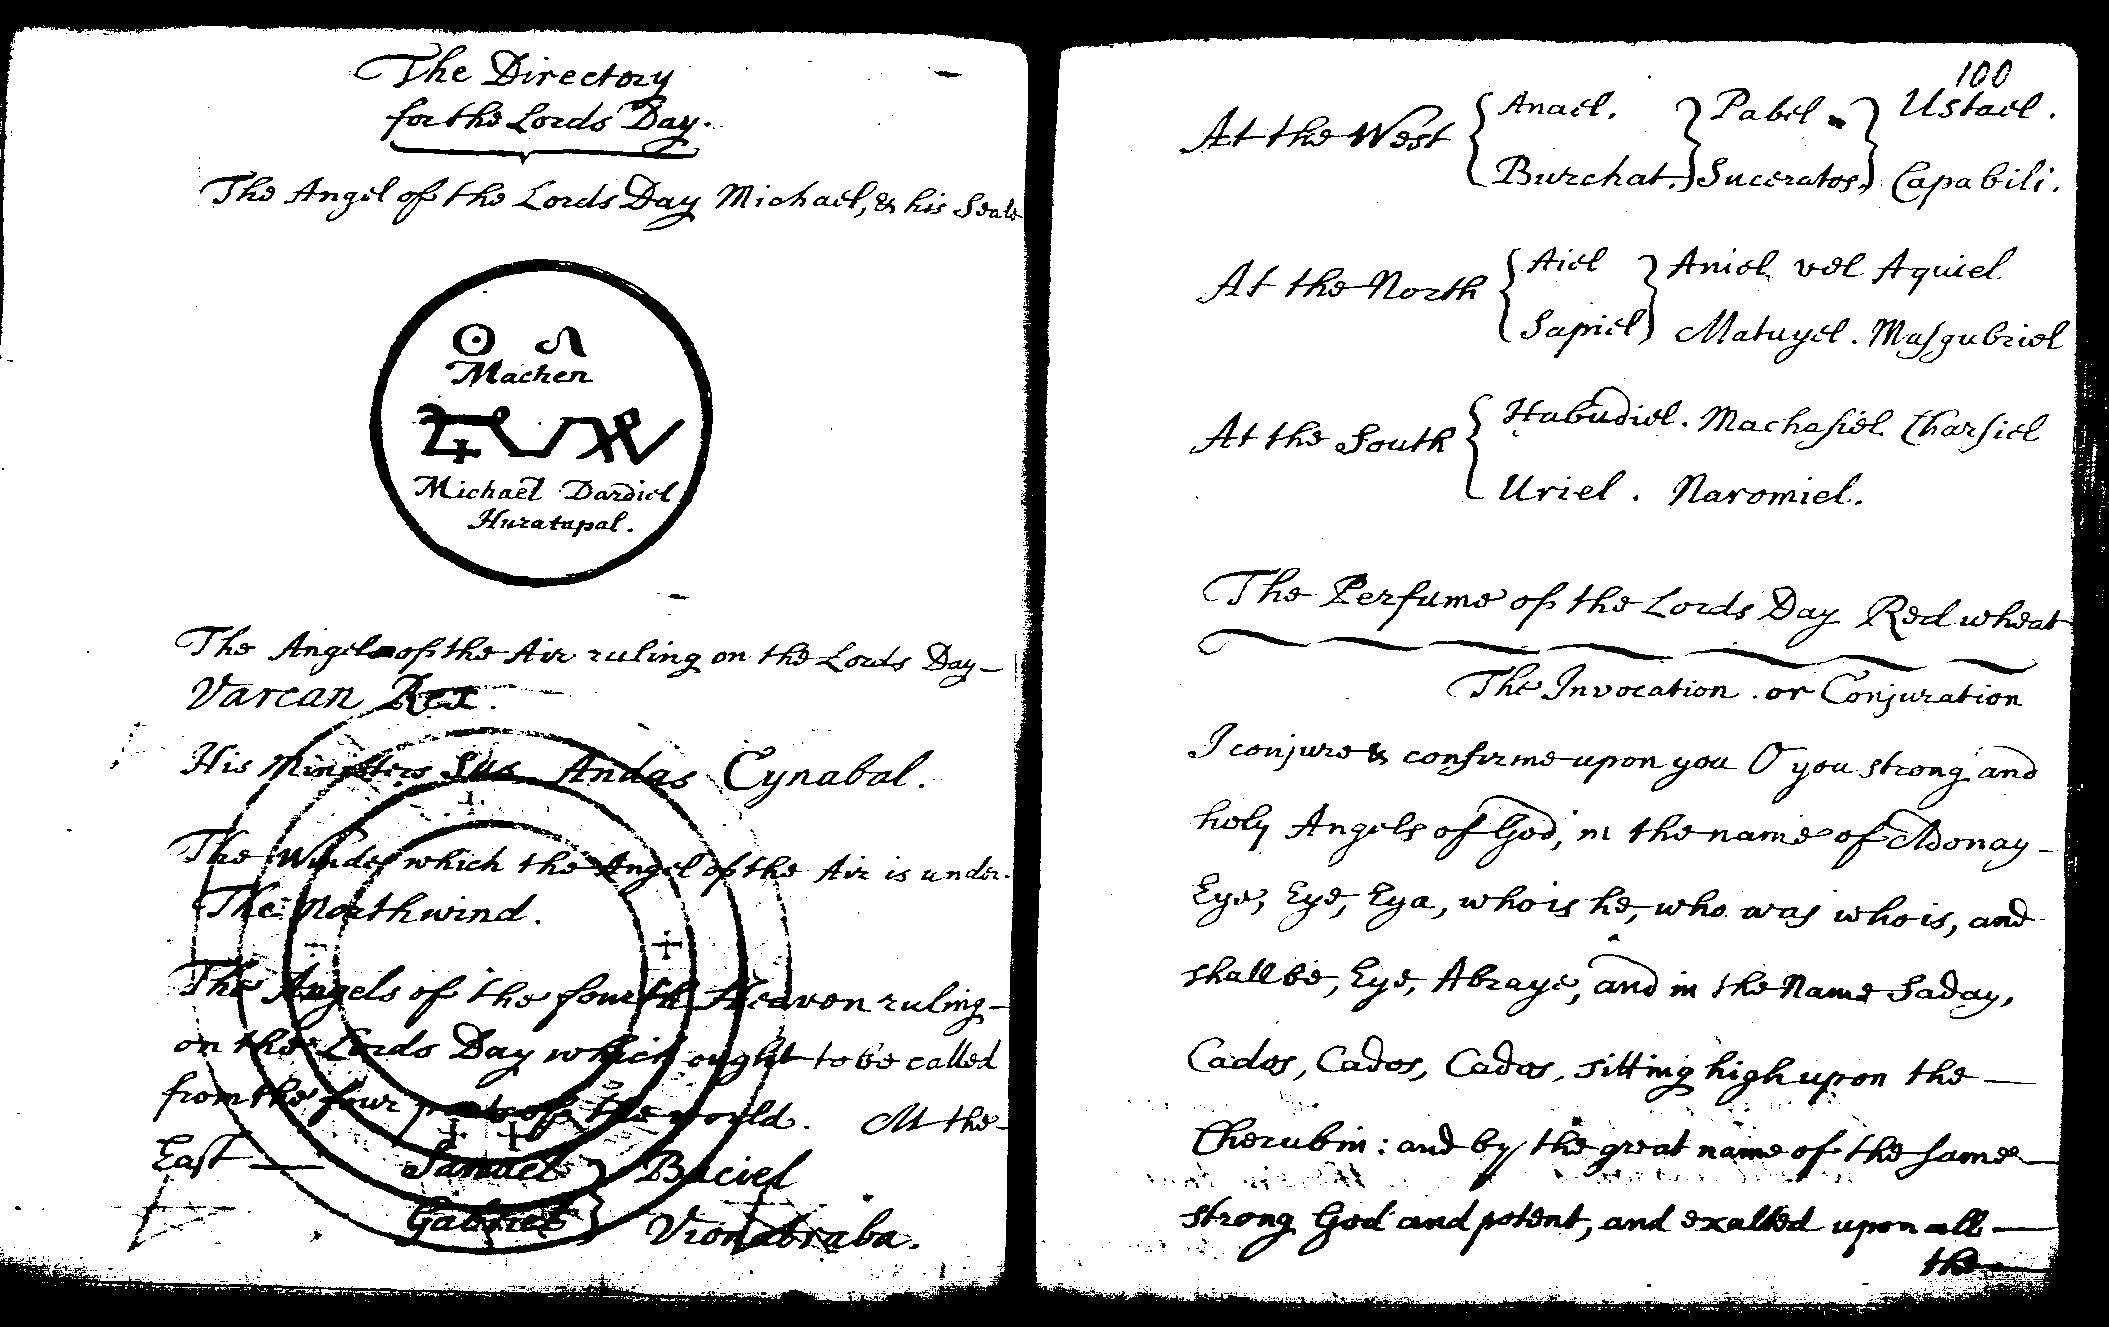 The Directory
for the Lords Day.
The Angel of the Lords Day Michael, & his Seale
☉ ♌
Machen
Michael Dardiel
Huratapal.
The Angel of the Air ruling on the Lords Day
Varcan Rex.
His Ministers Sus Andas Cynabal.
The Winde which the Angel of the Air is under.
The Northwind.
The Angels of the fourth Heaven ruling
on the Lords Day which ought to be called
from the four parts of the world. At the
East — Samael } Baciel
Gabriel } Vionabraba.
100
At the West { Anael. } Pabel } Ustael.
Burchat. } Suceratos. } Capabili.
At the North { Aiel } Aniel vel Aquiel
Sapiel } Matuyel. Masgubriel
At the South { Habudiel. Machasiel Charsiel
Uriel. Naromiel.
The Perfume of the Lords Day Red wheat
The Invocation or Conjuration
I conjure & confirme upon you O you strong and
holy Angels of God, in the name of Adonay
Eye, Eye, Eya, who is he, who was who is, and
shall be, Eye, Abraye, and in the Name Saday,
Cados, Cados, Cados, sitting high upon the —
Cherubin: and by the great name of the same —
strong God and potent, and exalted upon all —
the —